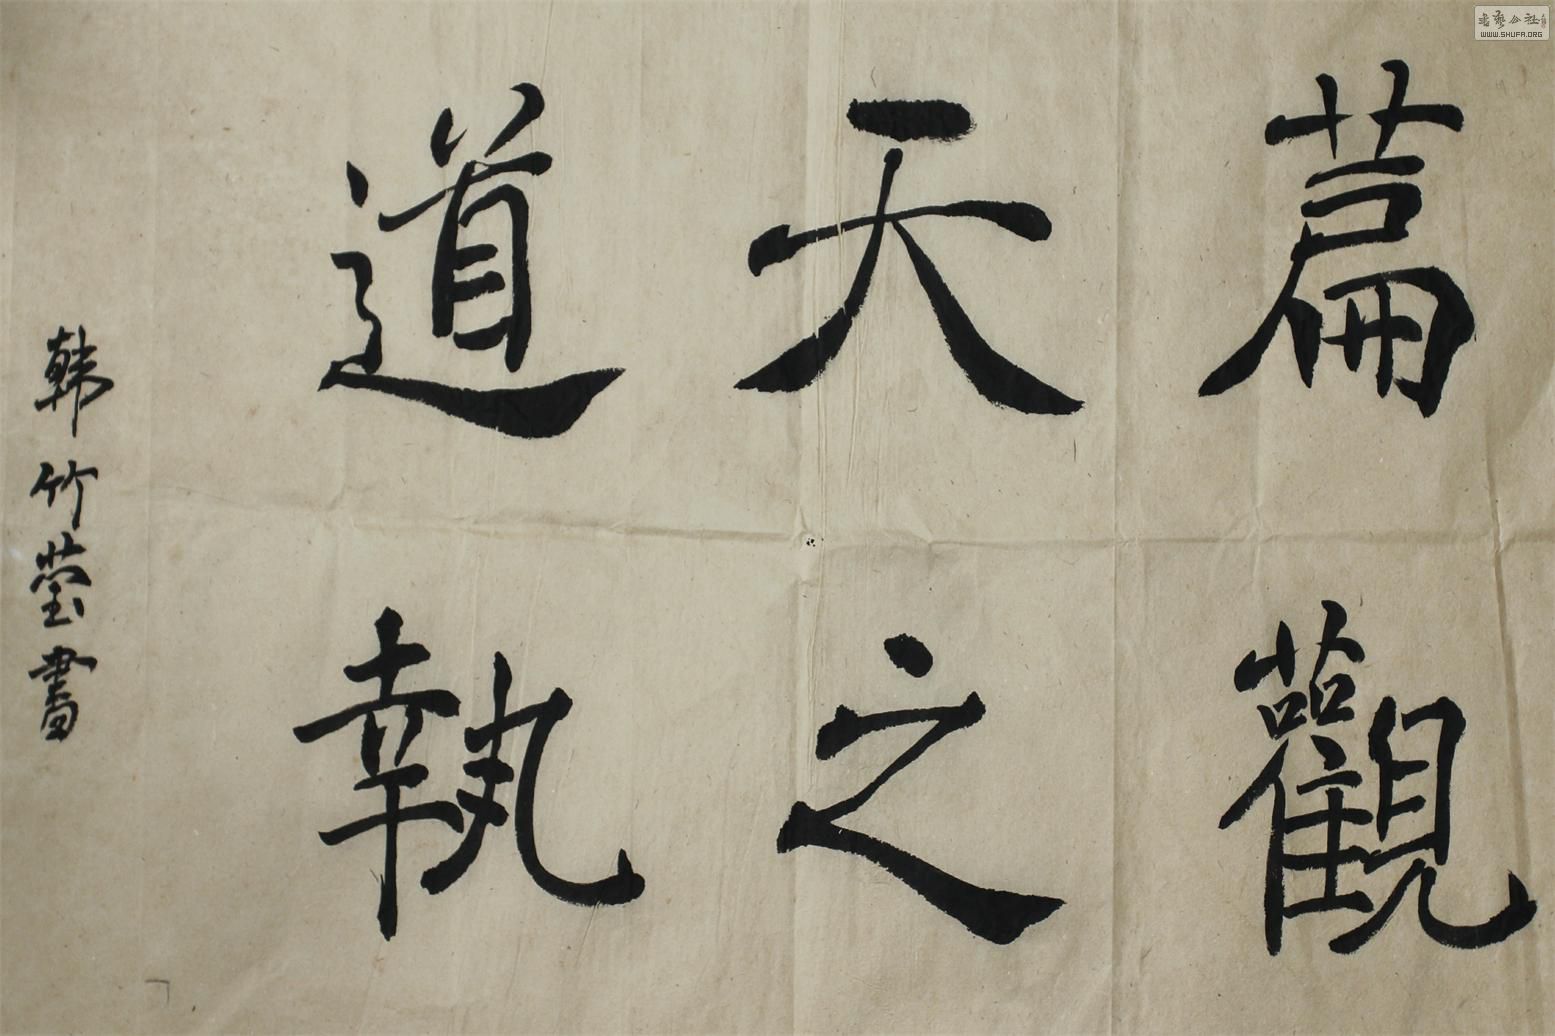 萹觀
天之
道執
韩竹莹書
書藝公社
WWW.SHUFA.ORG